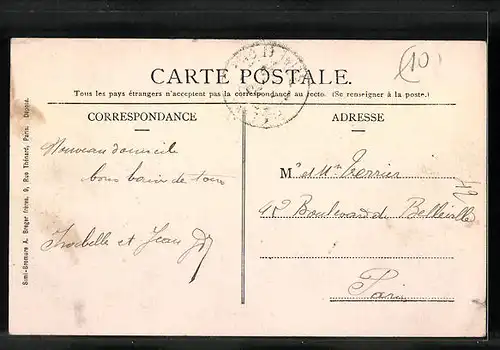 (10)
CARTE POSTALE.
Tous les pays étrangers n'acceptent pas la correspondance au recto. (Se renseigner à la poste.)
CORRESPONDANCE
Nouveau domicile
bons baisers de tous
Isabelle et Jean
ADRESSE
M. et Mme Terrier
42 Boulevard de Belleville
Paris
Simi-Bromure A. Breger frères, 9, Rue Thénard, Paris. Déposé.